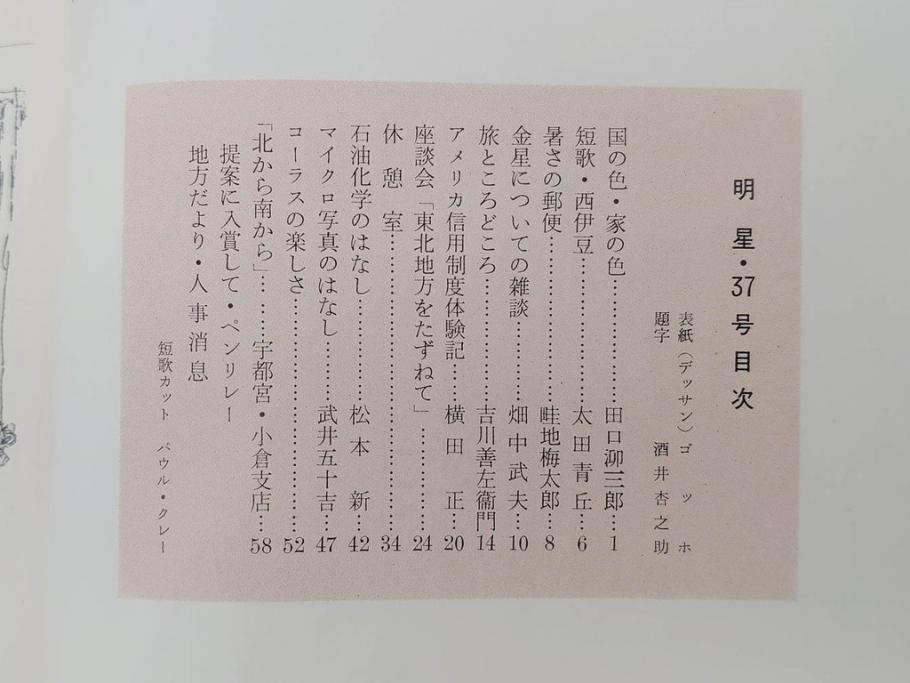 明星・37号目次
表紙(デッサン)ゴッホ
題字 酒井杏之助
国の色・家の色……………田口泖三郎…1
短歌・西伊豆……………太田青丘…6
暑さの郵便……………畦地梅太郎…8
金星についての雑談……………畑中武夫…10
旅ところどころ……………吉川善左衞門…14
アメリカ信用制度体験記……横田正…20
座談会「東北地方をたずねて」……………24
休憩室……………34
石油化学のはなし……………松本新…42
マイクロ写真のはなし……武井五十吉…47
コーラスの楽しさ……………52
「北から南から」……宇都宮・小倉支店…58
提案に入賞して・ペンリレー
地方だより・人事消息
短歌カット パウル・クレー